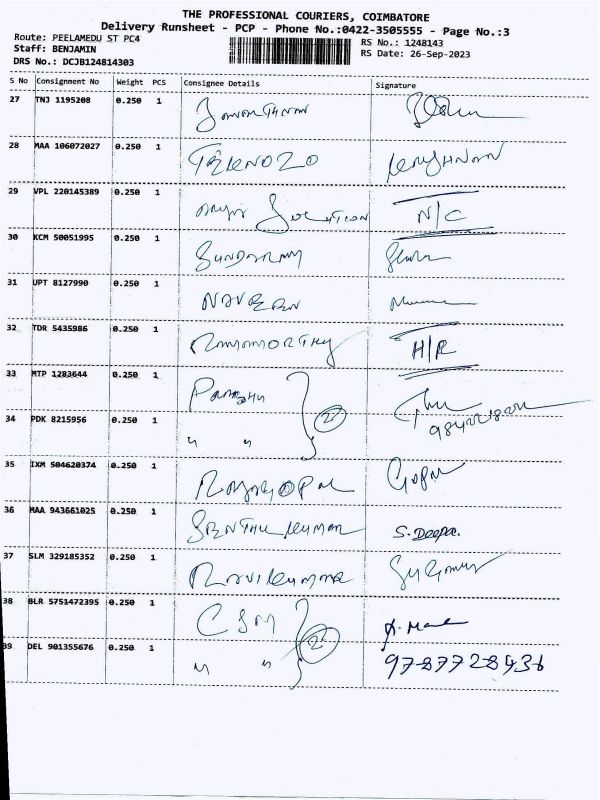 THE PROFESSIONAL COURIERS, COIMBATORE
Delivery Runsheet - PCP - Phone No.:0422-3505555 - Page No.:3
Route: PEELAMEDU ST PC4
RS No.: 1248143
Staff: BENJAMIN
RS Date: 26-Sep-2023
DRS No.: DCJB124814303
S No Consignment No Weight PCS Consignee Details Signature
27 TNJ 1195208 0.250 1
28 MAA 106072027 0.250 1
29 VPL 220145389 0.250 1 N/C
30 KCM 50051995 0.250 1 SUNDARAM
31 UPT 8127990 0.250 1 NAVEEN
32 TDR 5435986 0.250 1 RAMAMOORTHY H/R
33 MTP 1283644 0.250 1
2
34 PDK 8215956 0.250 1 " "
35 IXM 504620374 0.250 1 RAJAGOPAL GOPAL
36 MAA 943661025 0.250 1 SENTHIL KUMAR S. Deepa.
37 SLM 329185352 0.250 1 RAVI KUMAR
38 BLR 5751472395 0.250 1 CSM
2
39 DEL 901355676 0.250 1 " " 9787728436